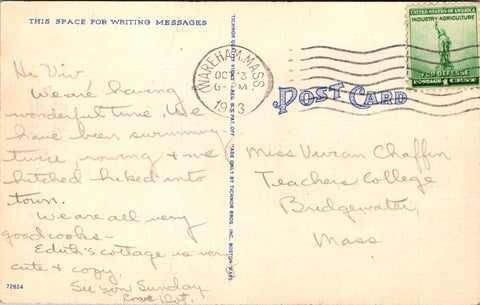 THIS SPACE FOR WRITING MESSAGES
Hi Viv
We are having
wonderful time. We
have been swimming
twice, rowing & we
hitched hiked into
town.
We are all very
good cooks –
Edith's cottage is very
cute & cozy.
See you Sunday
Love Dot.
72824
TICHNOR QUALITY VIEWS REG. U.S. PAT. OFF. MADE ONLY BY TICHNOR BROS. INC., BOSTON MASS.
WAREHAM, MASS.
OCT 3
6 PM
1943
UNITED STATES OF AMERICA
INDUSTRY AGRICULTURE
FOR DEFENSE
POSTAGE 1 CENT
POST CARD
Miss Vivian Chaffin
Teachers College
Bridgewater,
Mass